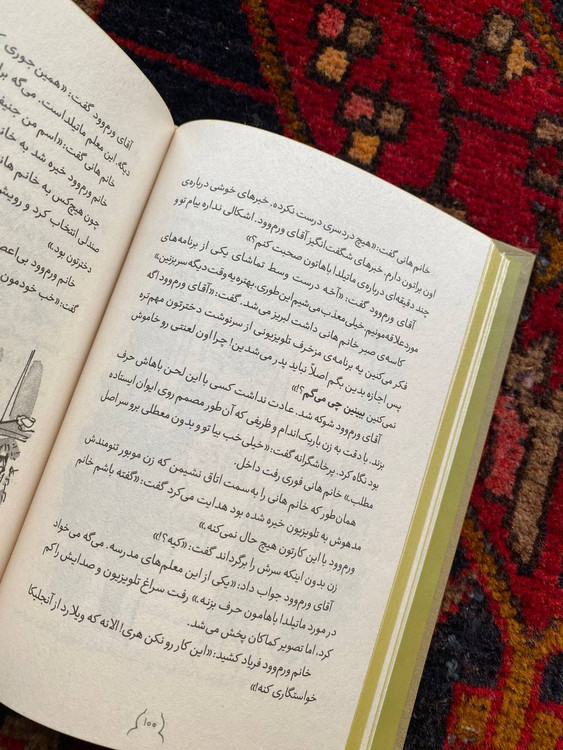 آقای ورم‌وود گفت: «همین جوری
دیگه. این معلم ماتیلداست. می‌گه
خانم هانی گفت: «اسم من
خانم ورم‌وود خیره شد به خانم
چون هیچ‌کس به خانم هانی
صندلی انتخاب کرد و رویش
دخترتون بود.»
خانم ورم‌وود بی‌اعصا
گفت: «خب خودمون
خانم هانی گفت: «هیچ دردسری درست نکرده. خبرهای خوشی درباره‌ی
اون براتون دارم. خبرهای شگفت‌انگیز آقای ورم‌وود. اشکالی نداره بیام تو و
چند دقیقه‌ای درباره‌ی ماتیلدا باهاتون صحبت کنم؟»
آقای ورم‌وود گفت: «آخه درست وسط تماشای یکی از برنامه‌های
مورد علاقه‌مونیم. خیلی معذب می‌شیم این‌طوری. بهتره یه وقت دیگه سر بزنین.»
کاسه‌ی صبر خانم هانی داشت لبریز می‌شد. گفت: «آقای ورم‌وود اگه
فکر می‌کنین یه برنامه‌ی مزخرف تلویزیونی از سرنوشت دخترتون مهم‌تره
پس اجازه بدین بگم اصلاً نباید پدر می‌شدین! چرا اون لعنتی رو خاموش
نمی‌کنین ببینین چی می‌گم؟!»
آقای ورم‌وود شوکه شد. عادت نداشت کسی با این لحن باهاش حرف
بزند. با دقت به زن باریک‌اندام و ظریفی که آن‌طور مصمم روی ایوان ایستاده
بود نگاه کرد. پرخاشگرانه گفت: «خیلی خب بیا تو و بدون معطلی برو سر اصل
مطلب.» خانم هانی فوری رفت داخل.
همان‌طور که خانم هانی را به سمت اتاق نشیمن که زن موبور تنومندش
مدهوش به تلویزیون خیره شده بود هدایت می‌کرد گفت: «گفته باشم خانم
ورم‌وود با این کارتون هیچ حال نمی‌کنه.»
زن بدون اینکه سرش را برگرداند گفت: «کیه؟!»
آقای ورم‌وود جواب داد: «یکی از این معلم‌های مدرسه. می‌گه می‌خواد
در مورد ماتیلدا باهامون حرف بزنه.» رفت سراغ تلویزیون و صدایش را کم
کرد، اما تصویر کماکان پخش می‌شد.
خانم ورم‌وود فریاد کشید: «این کار رو نکن هری! الانه که ویلارد از آنجلیکا
خواستگاری کنه!»
۱۰۰